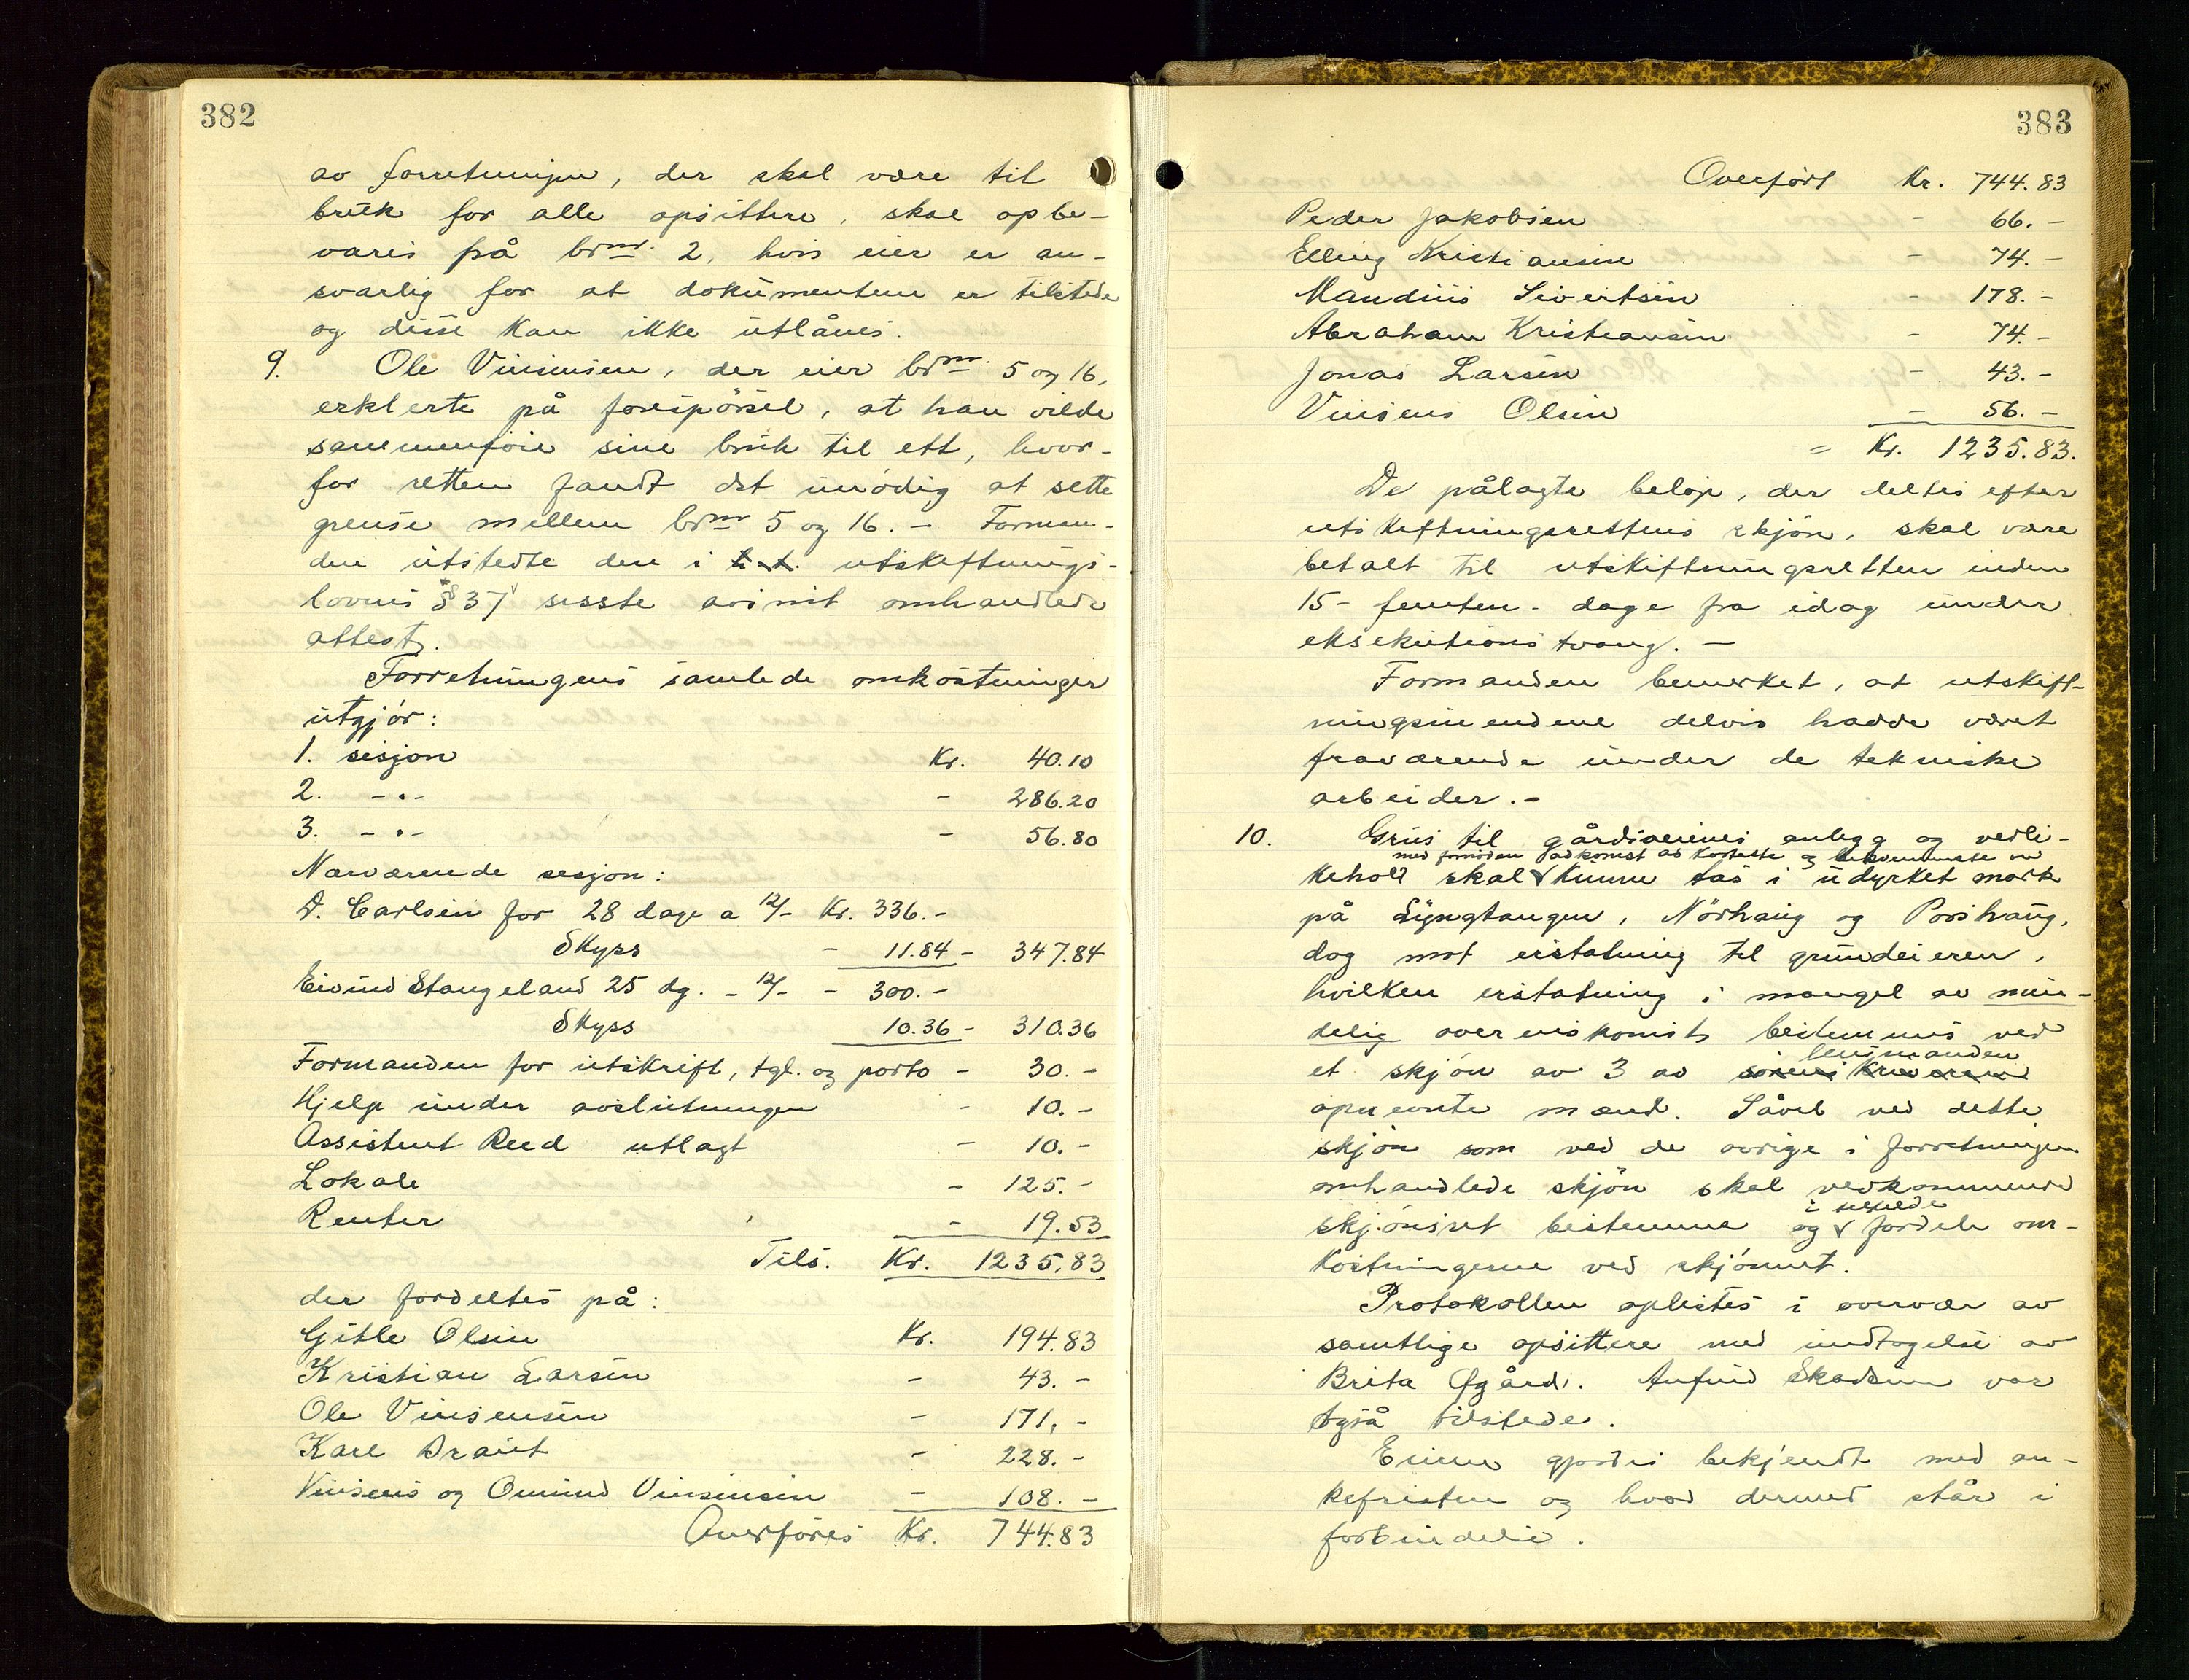 382
av forretningen, der skal være til
bruk for alle opsittere, skal opbe-
vares på brnr. 2, hvis eier er an-
svarlig for at dokumentene er tilstede
og disse kan ikke utlånes.
9. Ole Vinsensen, der eier brnr. 5 og 16,
erklerte på forespørsel, at han vilde
sammenføie sine bruk til ett, hvor-
for retten fandt det unødig at sette
grense mellem brnr 5 og 16. - Forman-
den utstedte den i utskiftnings-
lovens § 37 sisste avsnit omhandlede
attest.
Forretningens samlede omkostninger
utgjør:
1. sesjon Kr. 40.10
2. -"- - 286.20
3. -"- - 56.80
Nærværende sesjon:
D. Carlsen for 28 dage a 12/- Kr. 336.-
Skyss - 11.84 - 347.84
Eivind Stangeland 25 dg. - 12/- - 300.-
Skyss 10.36 - 310.36
Formanden for utskrift, tgl. og porto - 30.-
Hjelp under avslutningen - 10.-
Assistent Reed utlagt - 10.-
Lokale - 125.-
Renter - 19.53
Tils. Kr. 1235,83
der fordeltes på:
Gitle Olsen Kr. 194.83
Kristian Larsen - 43.-
Ole Vinsensen - 171,-
Karl Braut - 228.-
Vinsens og Omund Vinsensen - 108.-
Overføres Kr. 744.83
383
Overført Kr. 744.83
Peder Jakobsen - 66.-
Elling Kristiansen - 74.-
Mandius Sivertsen - 178.-
Abraham Kristiansen - 74.-
Jonas Larsen - 43.-
Vinsens Olsen - 56.-
= Kr. 1235.83.
De pålagte beløp, der deltes efter
utskiftningsrettens skjøn, skal være
betalt til utskiftningsretten inden
15- femten- dage fra idag under
eksekutionstvang. -
Formanden bemerket, at utskift-
ningsmendene delvis hadde været
fraværende under de tekniske
arbeider. -
10. Grus til gårdsveienes anlegg og vedli-
med fornøden adkomst ad korteste og bekvemmeste vei
kehold skal kunne tas i udyrket mark
på Lyngtangen, Nørhaug og Porshaug,
dog mot erstatning til grundeieren,
hvilken erstatning i mangel av min-
delig overenskomst bestemmes ved
lensmanden
et skjøn av 3 av
opnevnte mænd. Såvel ved dette
skjøn som ved de øvrige i forretningen
omhandlede skjøn skal vedkommende
i tilfelde
skjønsret bestemme og fordele om-
kostningerne ved skjønnet.
Protokollen oplestes i overvær av
samtlige opsittere med undtagelse av
Brita Øgård. Anfind Skadsem var
også tilstede.
Enhver gjordes bekjendt med an-
kefristen og hvad dermed står i
forbindelse.